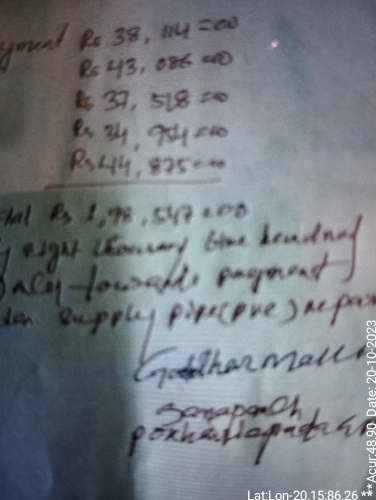 yment Rs 38,114=00
Rs 43,086=00
Rs 37,518=00
Rs 34,954=00
Rs 44,875=00
tal Rs 1,98,547=00
y eight thousand five hundred
only towards payment
supply pipe(pvc) repair
Lat:Lon-20.15:86.26 ***Acur:48.90 Date: 20-10-2023